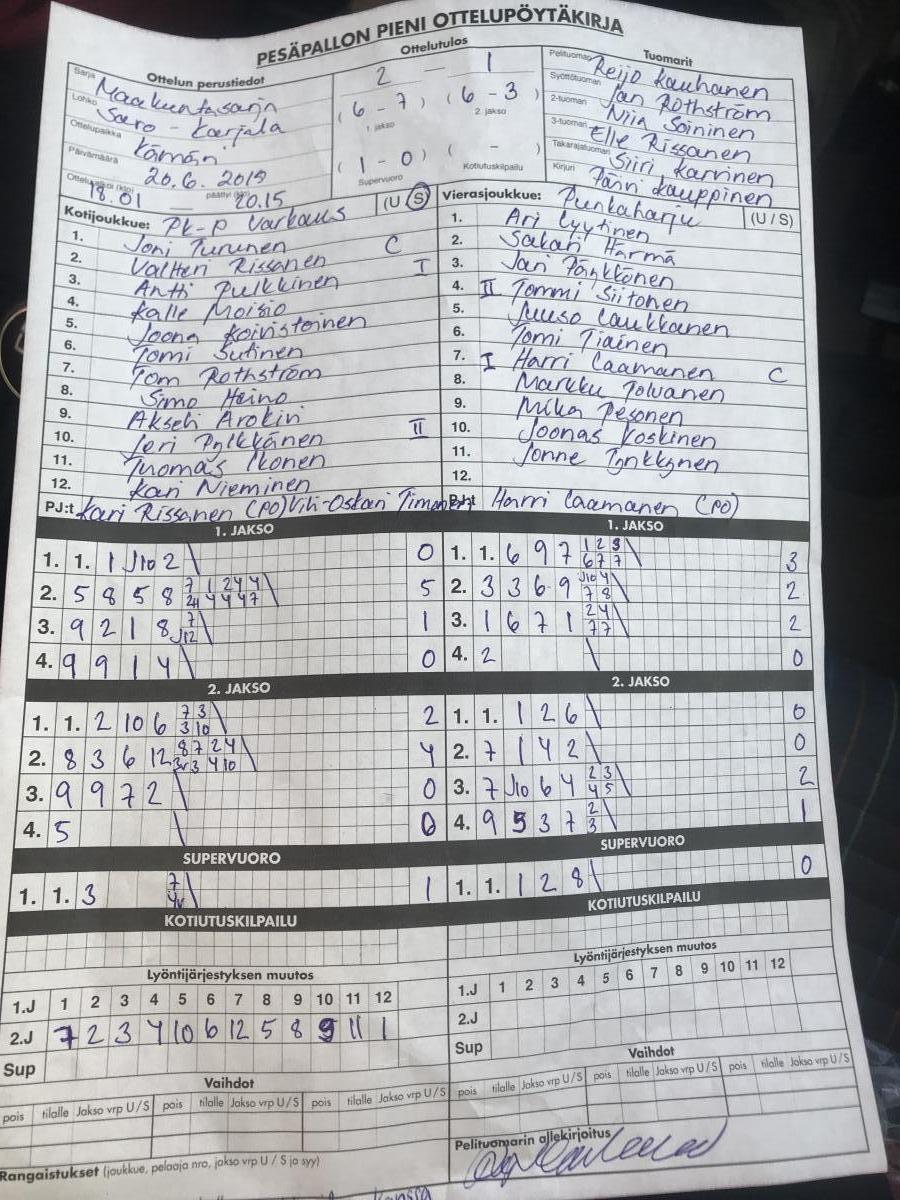 PESÄPALLON PIENI OTTELUPÖYTÄKIRJA
Ottelun perustiedot
Sarja Maakuntasarja
Lohko Savo - Karjala
Ottelupaikka Kämäri
Päivämäärä 20.6.2019
Ottelu alkoi (klo) 18.01 päättyi (klo) 20.15
Ottelutulos
2 — 1
(6 - 7) (6 - 3)
1. jakso 2. jakso
(1 - 0) ( - )
Supervuoro Kotiutuskilpailu
Tuomarit
Pelituomari Reijo Kauhanen
Syöttötuomari Jan Rothström
2-tuomari Niia Soininen
3-tuomari Elle Rissanen
Takarajatuomari Siiri Karvinen
Kirjuri Päivi Kauppinen
Kotijoukkue: PK-P Varkaus (U / S)
1. Joni Turunen C
2. Valtteri Rissanen I
3. Antti Pulkkinen
4. Kalle Moisio
5. Joona Koivistoinen
6. Tomi Sutinen
7. Tom Rothström
8. Simo Heino
9. Akseli Arokivi
10. Jeri Pylkkänen II
11. Tuomas Ikonen
12. Kari Nieminen
PJ:t Kari Rissanen (PO) Vili-Oskari Timonen
Vierasjoukkue: Punkaharju (U / S)
1. Ari Lyytinen
2. Sakari Härmä
3. Jari Pänkkönen
4. II Tommi Siitonen
5. Juuso Laukkanen
6. Tomi Tiainen
7. I Harri Laamanen C
8. Markku Tolvanen
9. Mika Pesonen
10. Joonas Koskinen
11. Jonne Tynkkynen
12.
PJ:t Harri Laamanen (PO)
1. JAKSO
1. 1. 1 J10 2 \ 0
2. 5 8 5 8 7 1 24 4 \ 5
24 4 4 4 7
3. 9 2 1 8 7 \ 1
J12
4. 9 9 1 4 \ 0
1. JAKSO
1. 1. 6 9 7 1 2 3 \ 3
6 7 7
2. 3 3 6 9 J10 4 \ 2
7 8
3. 1 6 7 1 2 4 \ 2
7 7
4. 2 \ 0
2. JAKSO
1. 1. 2 10 6 7 3 \ 2
3 10
2. 8 3 6 12 8 7 2 4 \ 4
3v 3 4 10
3. 9 9 7 2 \ 0
4. 5 \ 0
2. JAKSO
1. 1. 1 2 6 \ 0
2. 7 1 4 2 \ 0
3. 7 J10 6 4 2 3 \ 2
4 5
4. 9 5 3 7 2 \ 1
3
SUPERVUORO
1. 1. 3 7 \ 1
4v
SUPERVUORO
1. 1. 1 2 8 \ 0
KOTIUTUSKILPAILU
KOTIUTUSKILPAILU
Lyöntijärjestyksen muutos
1.J 1 2 3 4 5 6 7 8 9 10 11 12
2.J 7 2 3 4 10 6 12 5 8 9 11 1
Sup
Lyöntijärjestyksen muutos
1.J 1 2 3 4 5 6 7 8 9 10 11 12
2.J
Sup
Vaihdot
pois tilalle Jakso vrp U / S pois tilalle Jakso vrp U / S pois tilalle Jakso vrp U / S
Vaihdot
pois tilalle Jakso vrp U / S pois tilalle Jakso vrp U / S pois tilalle Jakso vrp U / S
Pelituomarin allekirjoitus
Rangaistukset (joukkue, pelaaja nro, jakso vrp U / S ja syy)